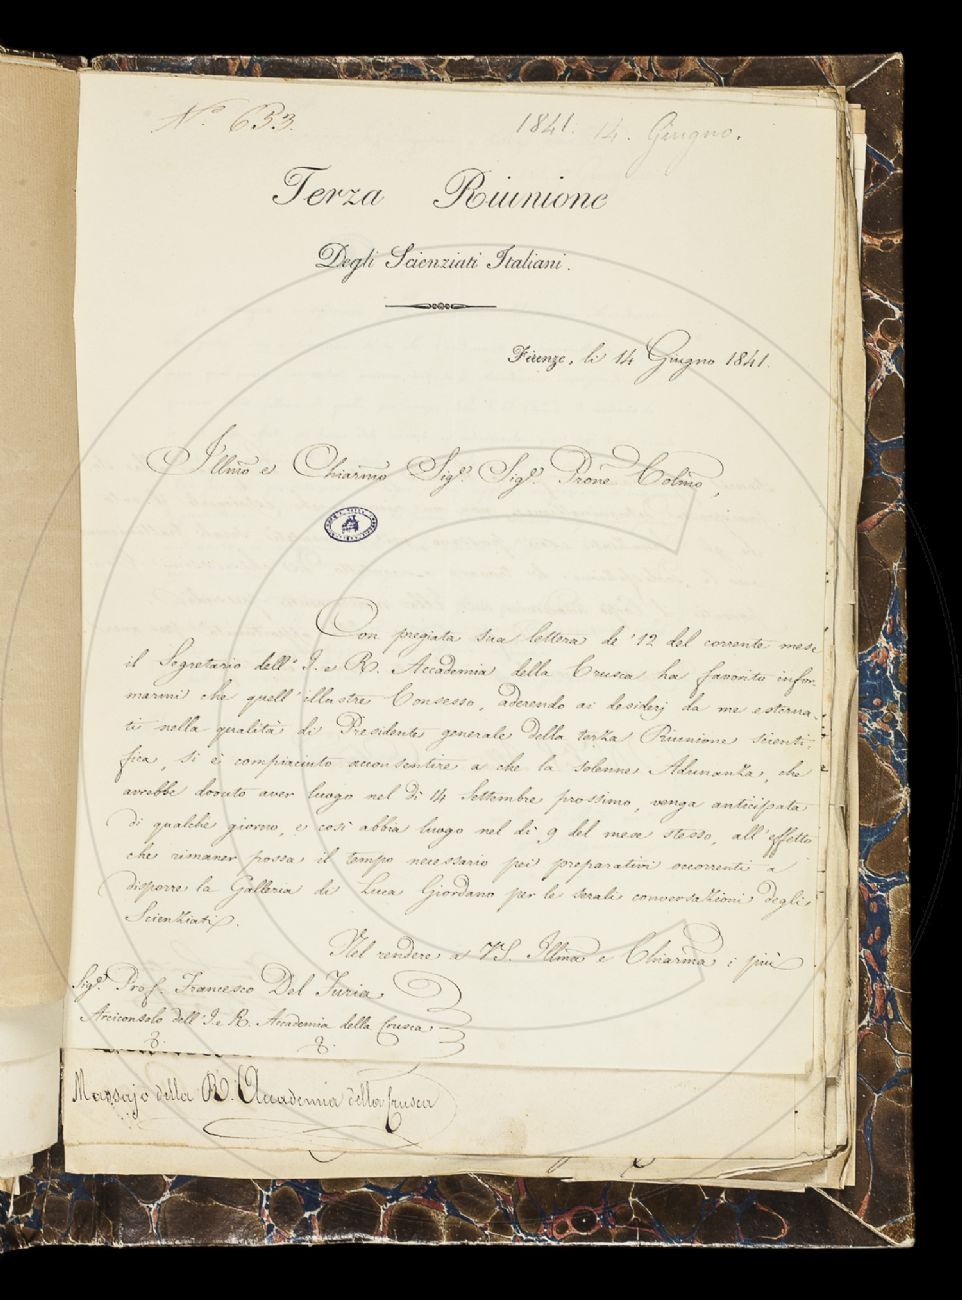 N.º 633.
1841. 14. Giugno.
Terza Riunione
Degli Scienziati Italiani.
Firenze, li 14 Giugno 1841.
Illmo e Chiarmo Sigr. Sigr. Prone Colmo,
Con pregiata sua lettera de' 12 del corrente mese
il Segretario dell' I. e R. Accademia della Crusca ha favorito infor-
marmi che quell' illustre Consesso, aderendo ai desiderj da me esterna-
ti nella qualità di Presidente generale della terza Riunione scienti-
fica, si è compiaciuto acconsentire a che la solenne Adunanza, che
avrebbe dovuto aver luogo nel dì 14 Settembre prossimo, venga anticipata
di qualche giorno, e così abbia luogo nel dì 9 del mese stesso, all' effetto
che rimaner possa il tempo necessario pei preparativi occorrenti a
disporre la Galleria di Luca Giordano per le serali conversazioni degli
Scienziati.
Nel rendere a VS. Illma e Chiarma i più
Sigr. Prof. Francesco Del Furia
Arciconsolo dell' I. e R. Accademia della Crusca
Massajo della R. Accademia della Crusca